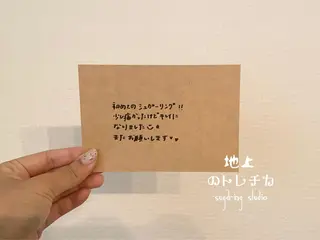 初めての シュガーリング!!
少し痛かったけど キレイに
なりました
また お願いします
地上
のトレチカ
sayd-by studio